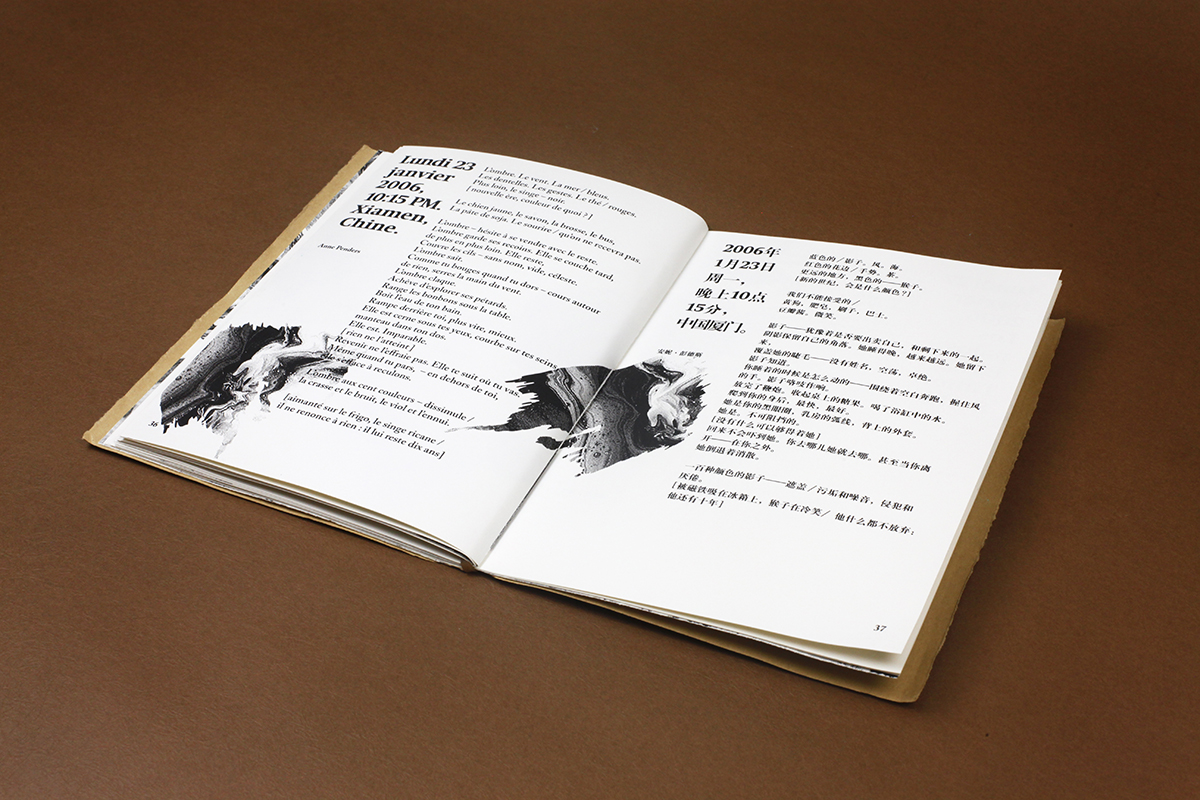 Lundi 23
janvier
2006,
10:15 PM.
Xiamen,
Chine.
Anne Penders
L'ombre. Le vent. La mer / bleus.
Les dentelles. Les gestes. Le thé / rouges.
Plus loin, le singe – noir.
[nouvelle ère, couleur de quoi ?]
Le chien jaune, le savon, la brosse, le bus,
La pâte de soja. Le sourire / qu'on ne recevra pas.
L'ombre – hésite à se vendre avec le reste.
L'ombre garde ses recoins. Elle se couche tard,
de plus en plus loin. Elle reste,
Couvre les cils – sans nom, vide, céleste.
L'ombre sait.
Comme tu bouges quand tu dors – cours autour
de rien, serres la main du vent.
L'ombre claque.
Achève d'exploser ses pétards,
Range les bonbons sous la table.
Boit l'eau de ton bain.
Rampe derrière toi, plus vite, mieux.
Elle est cerne sous tes yeux, courbe sur tes seins,
manteau dans ton dos.
Elle est. Imparable.
[rien ne l'atteint]
Revenir ne l'effraie pas. Elle te suit où tu vas.
Même quand tu pars, – en dehors de toi,
s'efface à reculons.
L'ombre aux cent couleurs – dissimule /
la crasse et le bruit, le viol et l'ennui.
[aimanté sur le frigo, le singe ricane /
il ne renonce à rien : il lui reste dix ans]
36
2006年
1月23日
周一,
晚上10点
15分,
中国厦门。
安妮·彭德斯
蓝色的/影子。风。海。
红色的花边/手势。茶。
更远的地方,黑色的——猴子。
[新的世纪,会是什么颜色?]
我们不能接受的/
黄狗,肥皂,刷子,巴士。
豆瓣酱。微笑。
影子——犹豫着是否要出卖自己,和剩下来的一起。
阴影保留自己的角落。她睡得晚,越来越远。她留下
来,
覆盖她的睫毛——没有姓名,空荡,卓绝。
影子知道。
你睡着的时候是怎么动的——围绕着空白奔跑,握住风
的手。影子咯吱作响。
放完了鞭炮。收起桌上的糖果。喝了浴缸中的水。
爬到你的身后,最快,最好。
她是你的黑眼圈,乳房的弧线,背上的外套。
她是。不可阻挡的。
[没有什么可以够得着她]
回来不会吓到她。你去哪儿她就去哪。甚至当你离
开——在你之外。
她倒退着消散。
一百种颜色的影子——遮盖/污垢和噪音,侵犯和
厌倦。
[被磁铁吸在冰箱上,猴子在冷笑/ 他什么都不放弃:
他还有十年]
37